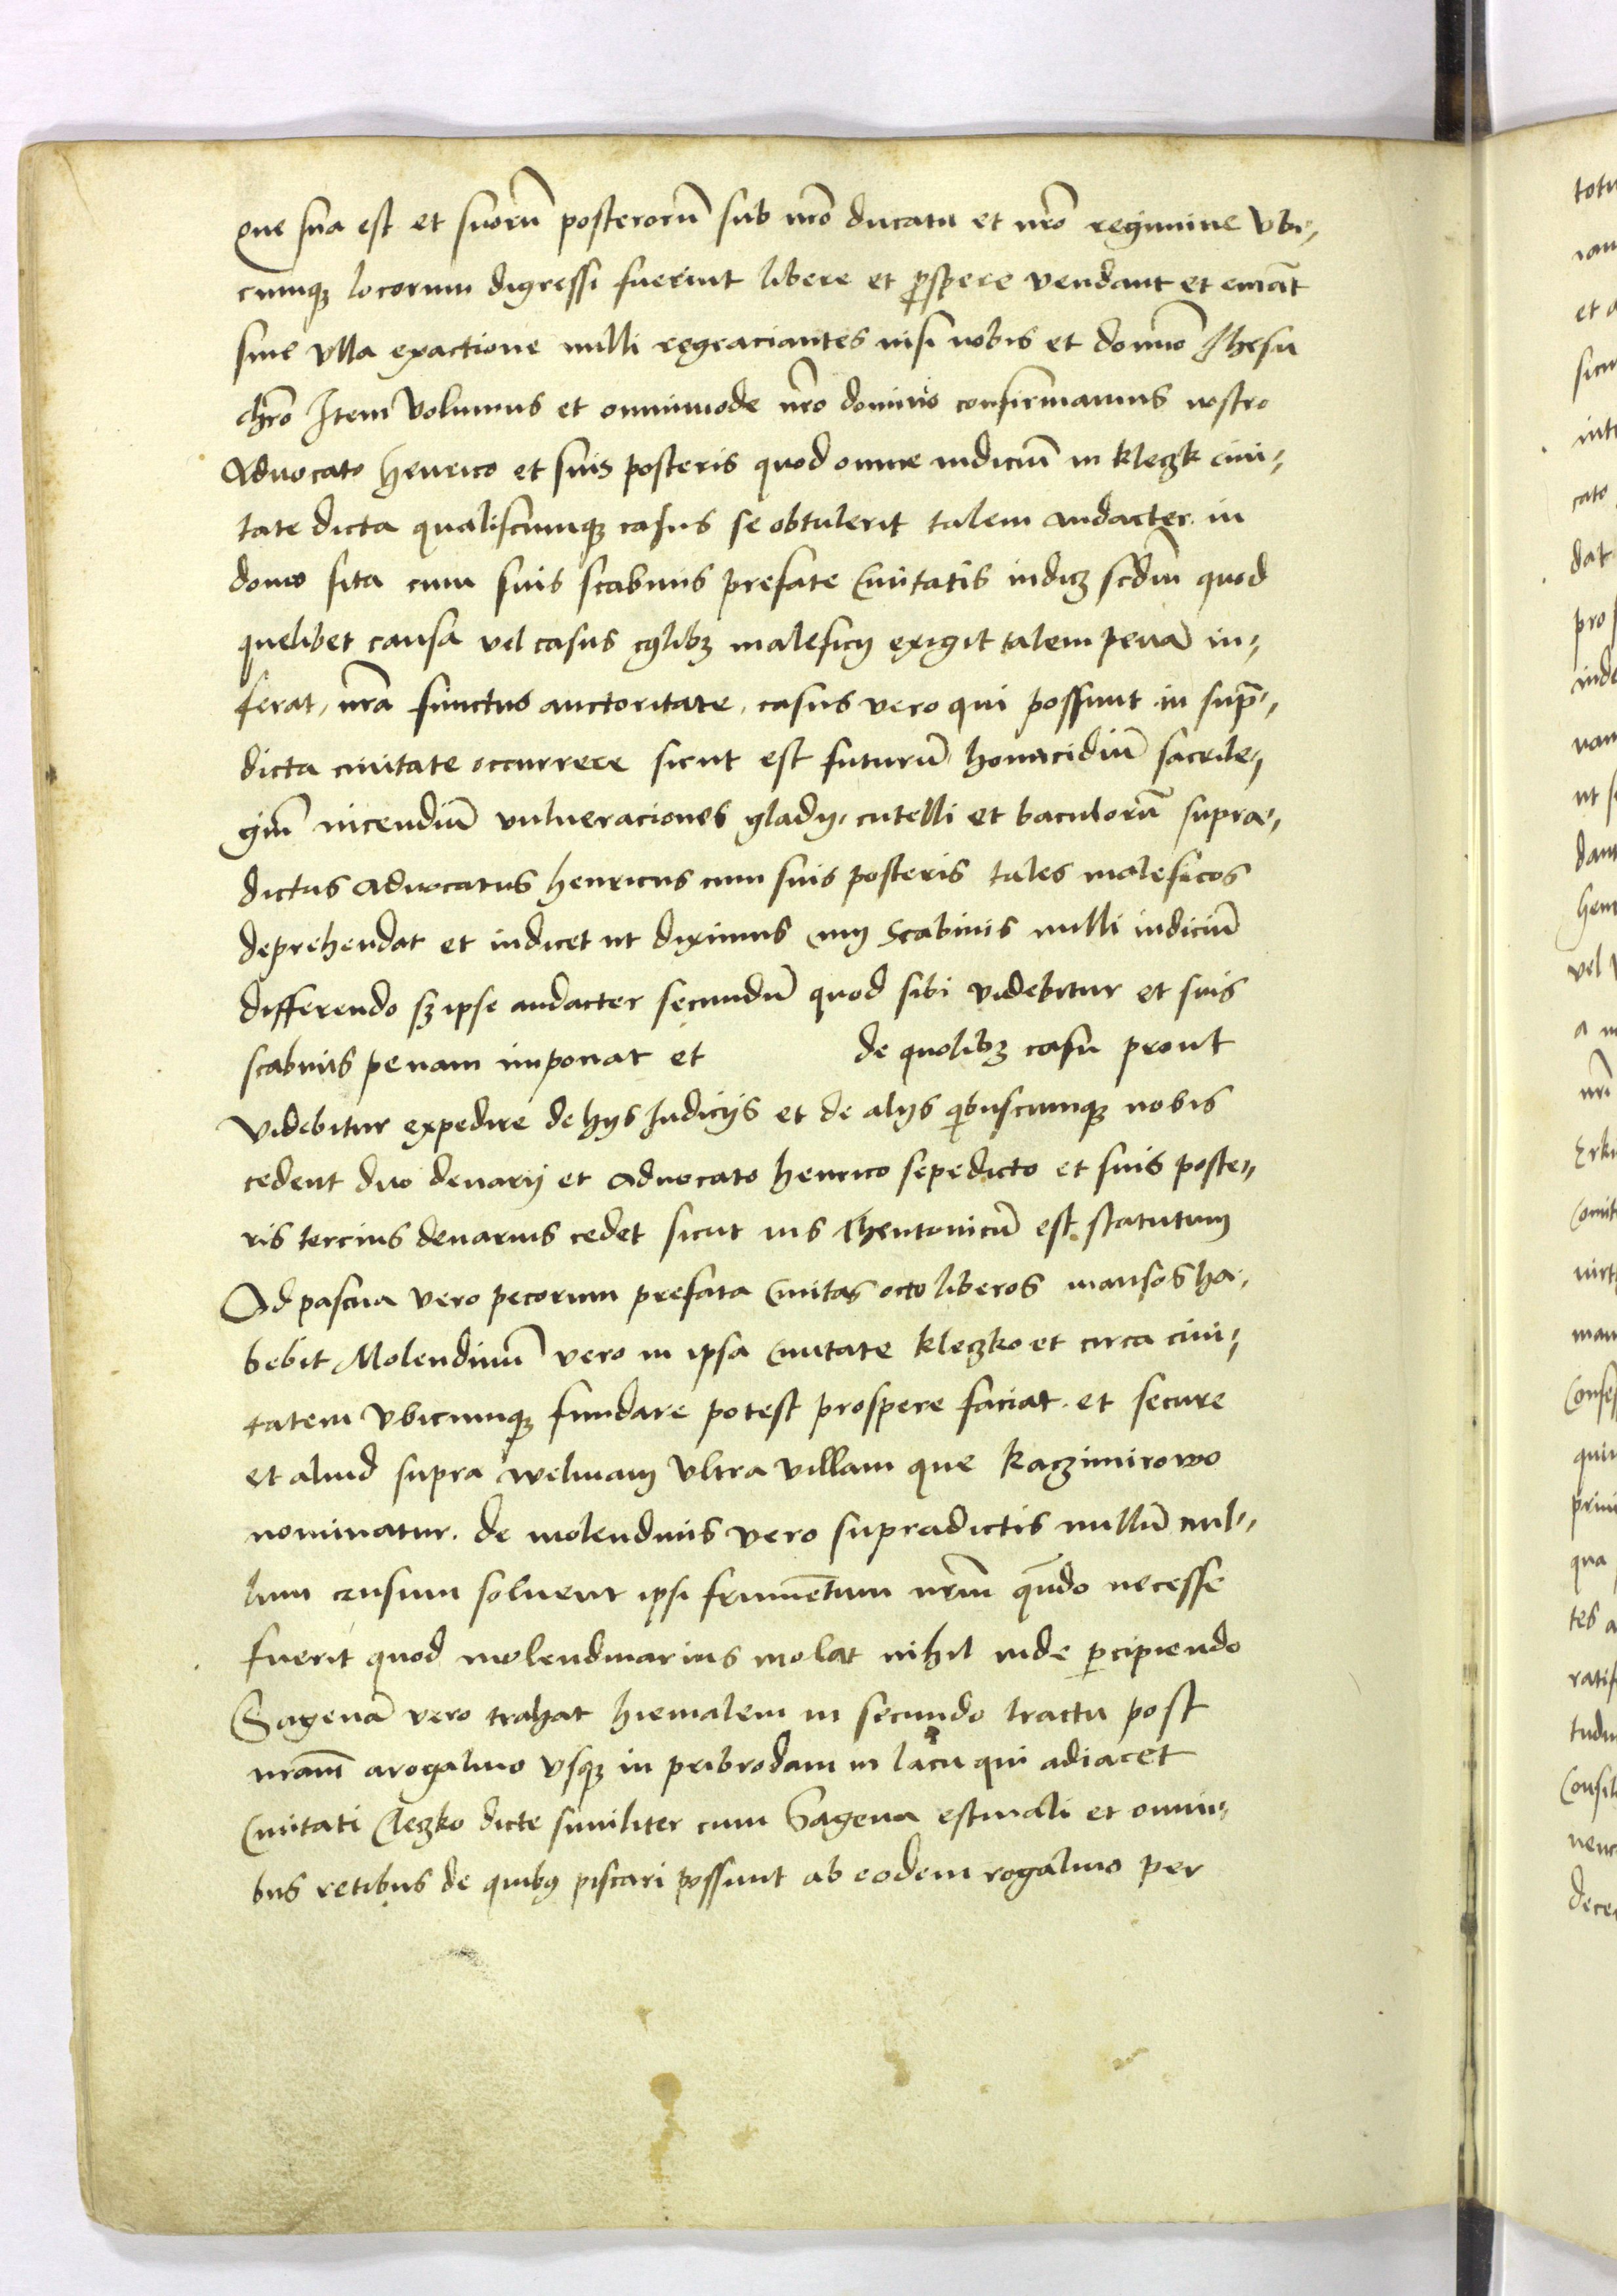 que sua est et suorũ posterorũ sub nr̃o ducatu et nr̃o regimine vbi-
cumqȝ locorum digressi fuerint libere et ꝓspere vendant et emãt
sine vlla exactione nulli regraciantes nisi nobis et domĩo Jhesu
chr̃o Item volumus et omnimode nr̃o dominio confirmamus nostro
Aduocato henrico et suis posteris quod omne iudiciũ in kleczk ciui-
tate dicta qualiscumqȝ casus se obtulerit talem audacter in
domo sita cum suis scabinis prefate Ciuitatis iudicȝ scdm̃ quod
quelibet causa vel casus cȝlibȝ maleficij exigit talem penã in-
ferat, nr̃a functus auctoritate, casus vero qui possunt in sup̃-
dicta ciuitate occurrere sicut est futurũ homicidiũ sacrile-
giũ incendiũ vulneraciones gladij, cutelli et baculorũ supra-
dictus aduocatus henricus cum suis posteris tales maleficos
deprehendat et iudicet ut diximus cum Scabinis nulli iudiciũ
differendo sȝ ipse audacter secundũ quod sibi videbitur et suis
scabinis penam imponat et de quolibȝ casu prout
videbitur expedire de hijs Judicijs et de alijs q̃buscumqȝ nobis
cedent duo denarij et aduocato henrico sepedicto et suis poste-
ris tercius denarius cedet sicut ius Theutonicũ est statutum
Ad pascua vero pecorum prefata Ciuitas octo liberos mansos ha-
bebit Molendinũ vero in ipsa Ciuitate kleczko et circa ciui-
tatem vbicumqȝ fundare potest prospere faciat et secure
et aliud supra welnam vltra villam que kaczimirowo
nominatur. de molendinis vero supradictis nullũ nul-
lum censum soluent ipsi frumẽtum nr̃m qñdo necesse
fuerit quod molendinarius molat nihil inde ꝑcipiendo
Sagenã vero trahat hiemalem in secundo tractu post
nram̃ arogalino vsqȝ in pribrodam in lacu qui adiacet
Ciuitati Cleczko dicte similiter cum Sagena estiuali et omni-
bus retibus de quibȝ piscari possunt ab eodem rogalino per